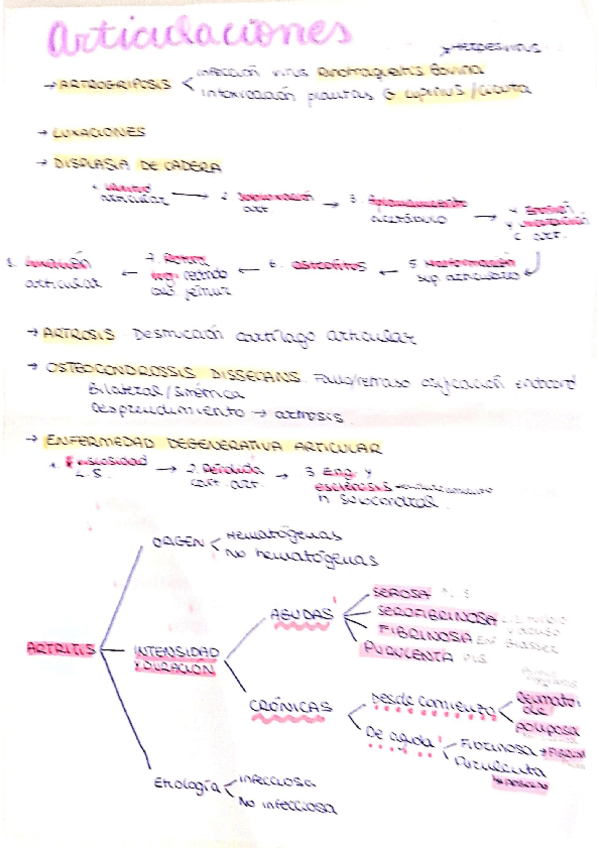 Articulaciones
→ Herpesvirus
→ ARTROGRIPOSIS < infección virus Rinotraqueitis Bovina
intoxicación plantas G Lupinus / cicuta
→ LUXACIONES
→ DISPLASIA DE CADERA
1. Laxitud articular → 2. Subluxación art → 3. Aplanamiento acetábulo → 4. Erosión
c. art.
8. Luxación articular ← 7. Rotura lig. redondo cab. fémur ← 6. Osteofitos ← 5. Malformación sup. articulares
→ ARTROSIS Destrucción cartílago articular
→ OSTEOCONDROSSIS DISSECANS Fallo/retraso osificación endocond
Bilateral / Simétrica
Desprendimiento → artrosis.
→ ENFERMEDAD DEGENERATIVA ARTICULAR
1. ↓ viscosidad L.S. → 2. Pérdida cart. art. → 3. Erq. y esclerosis
h subcondral.
ARTRITIS
ORIGEN < Hematógenas
No hematógenas
INTENSIDAD Y DURACIÓN
AGUDAS
SEROSA L.S
SEROFIBRINOSA
FIBRINOSA Enf Glasser
PURULENTA pus
CRÓNICAS
Desde comienzo < Reumatoide
Poliposa
De aguda < Fibrinosa →
Purulenta
Etiología < infecciosa
No infecciosa